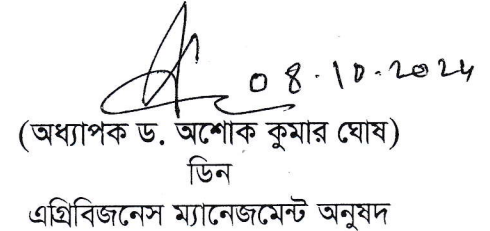 08.10.2024
(অধ্যাপক ড. অশোক কুমার ঘোষ)
ডিন
এগ্রিবিজনেস ম্যানেজমেন্ট অনুষদ